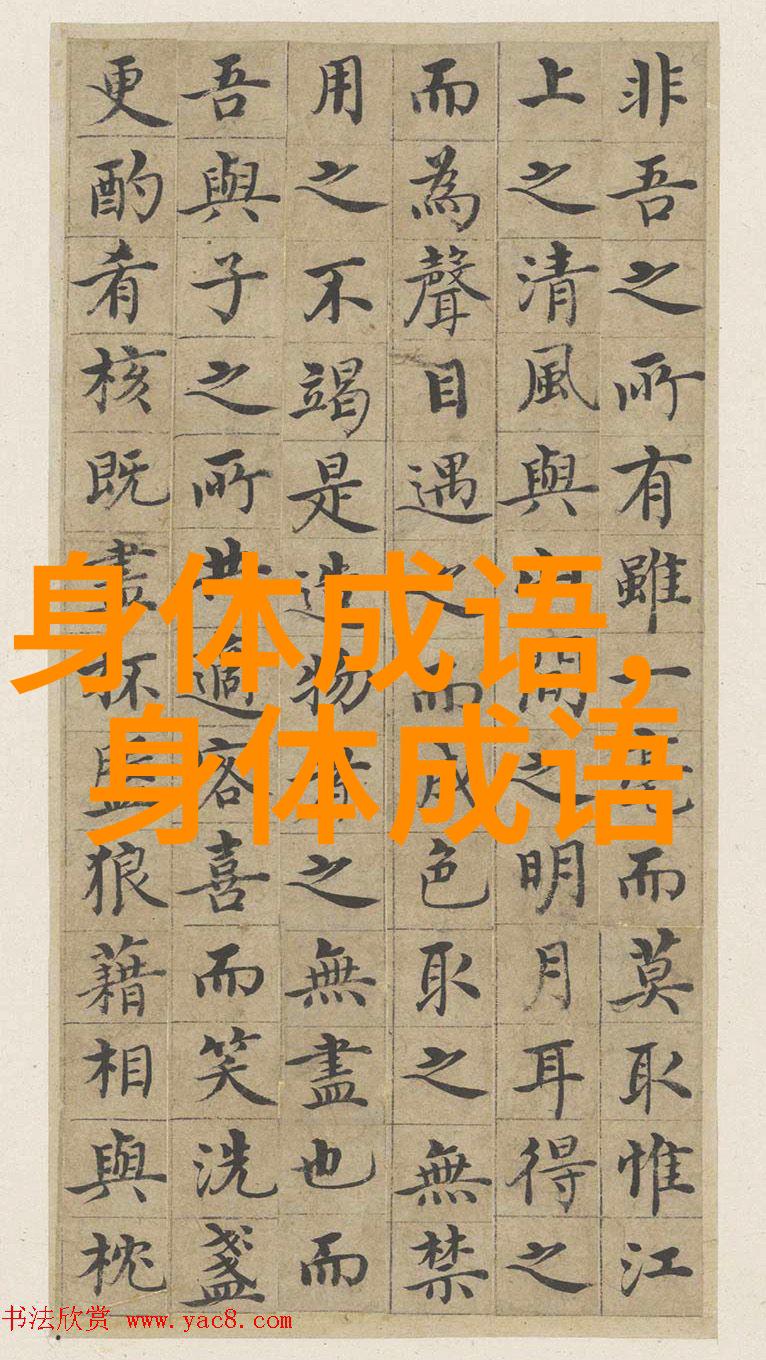 非吾之所有雖一毫而莫取惟江
上之清風與山間之明月耳得之
而為聲目遇之而成色取之無禁
用之不竭是造物者之無盡也而
吾與子之所共適客喜而笑洗盞
更酌肴核既盡杯盤狼藉相與枕
身体成语,
身体成语
书法欣赏 www.yac8.com